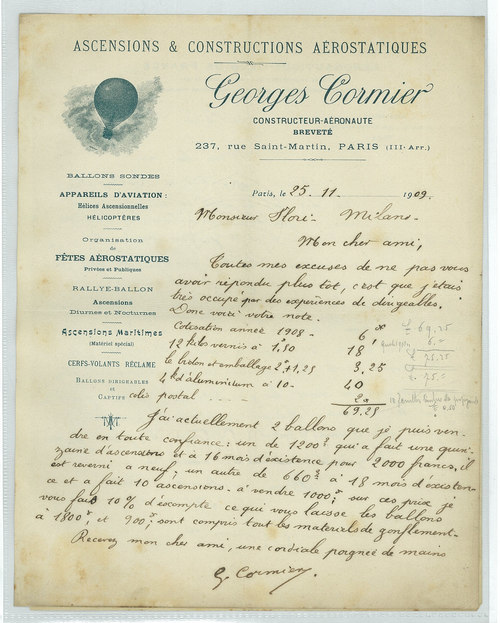 ASCENSIONS & CONSTRUCTIONS AÉROSTATIQUES
Georges Cormier
CONSTRUCTEUR-AÉRONAUTE
BREVETÉ
237, rue Saint-Martin, PARIS (III· Arr.)
BALLONS SONDES
APPAREILS D'AVIATION :
Hélices Ascensionnelles
HÉLICOPTÈRES
Organisation
de
FÊTES AÉROSTATIQUES
Privées et Publiques
RALLYE-BALLON
Ascensions
Diurnes et Nocturnes
Ascensions Maritimes
(Matériel spécial)
CERFS-VOLANTS RÉCLAME
BALLONS DIRIGEABLES
et
CAPTIFS
Paris, le 25 - 11 - 1909.
Monsieur Flori - Milans -
Mon cher ami,
Toutes mes excuses de ne pas vous
avoir répondu plus tôt, c'est que j'étais
très occupé par des expériences de dirigeables.
Donc voici votre note.
Cotisation année 1908 - 6
12 kilos vernis à 1,50 18
le bidon et emballage 2 + 1,25 3,25
4 k d'aluminium à 10 - 40
colis postal 2
69.25
J'ai actuellement 2 ballons que je puis ven-
dre en toute confiance; un de 1200 qui a fait une quin-
zaine d'ascensions et a 16 mois d'existence pour 2000 francs, il
est reverni a neuf; un autre de 660 à 18 mois d'existen-
ce et a fait 10 ascensions - à vendre 1000; sur ces prix je
vous fais 10% d'escompte ce qui vous laisse les ballons
à 1800, et 900; sont compris tout les matériels de gonflement -
Recevez mon cher ami, une cordiale poignée de mains
G. Cormier.
69,25